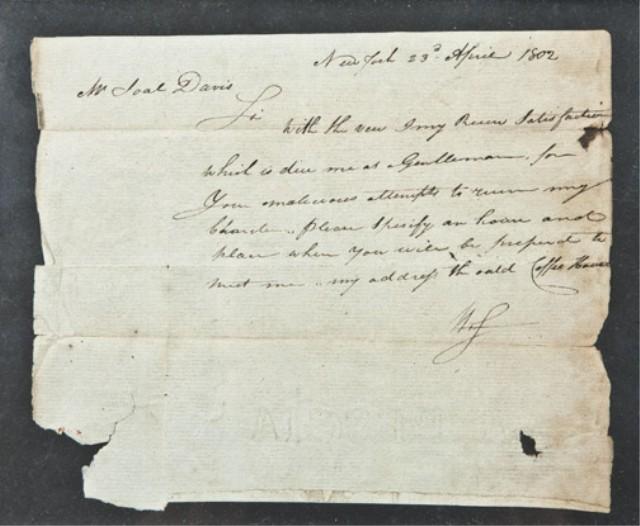 New York 23d April 1802
Mr Joal Davis
Sir
With the vew I my Receve Satisfaction
which is due me as a Gentleman, for
Your malicious attempts to ruin my
please Specify an hour and
place when You will be prepared to
meet me my address the oald Coffee House